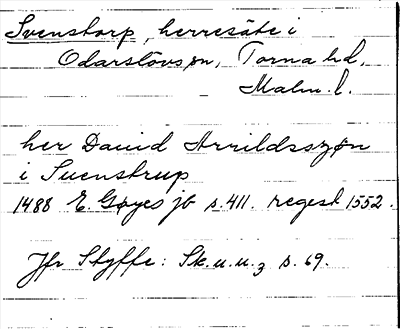 Svenstorp, herresäte i
Odarslövs sn, Torna hd,
Malm. l.
her Dauid Arvildsszøn
i Suenstrup
1488 E. Gøyes jb s. 411. regest 1552.
Jfr Styffe: Sk. u. u. 3 s. 69.